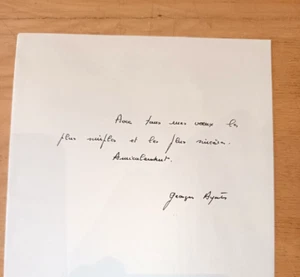 Avec tous mes vœux les
plus simples et les plus sincères.
Amicalement.
Georges